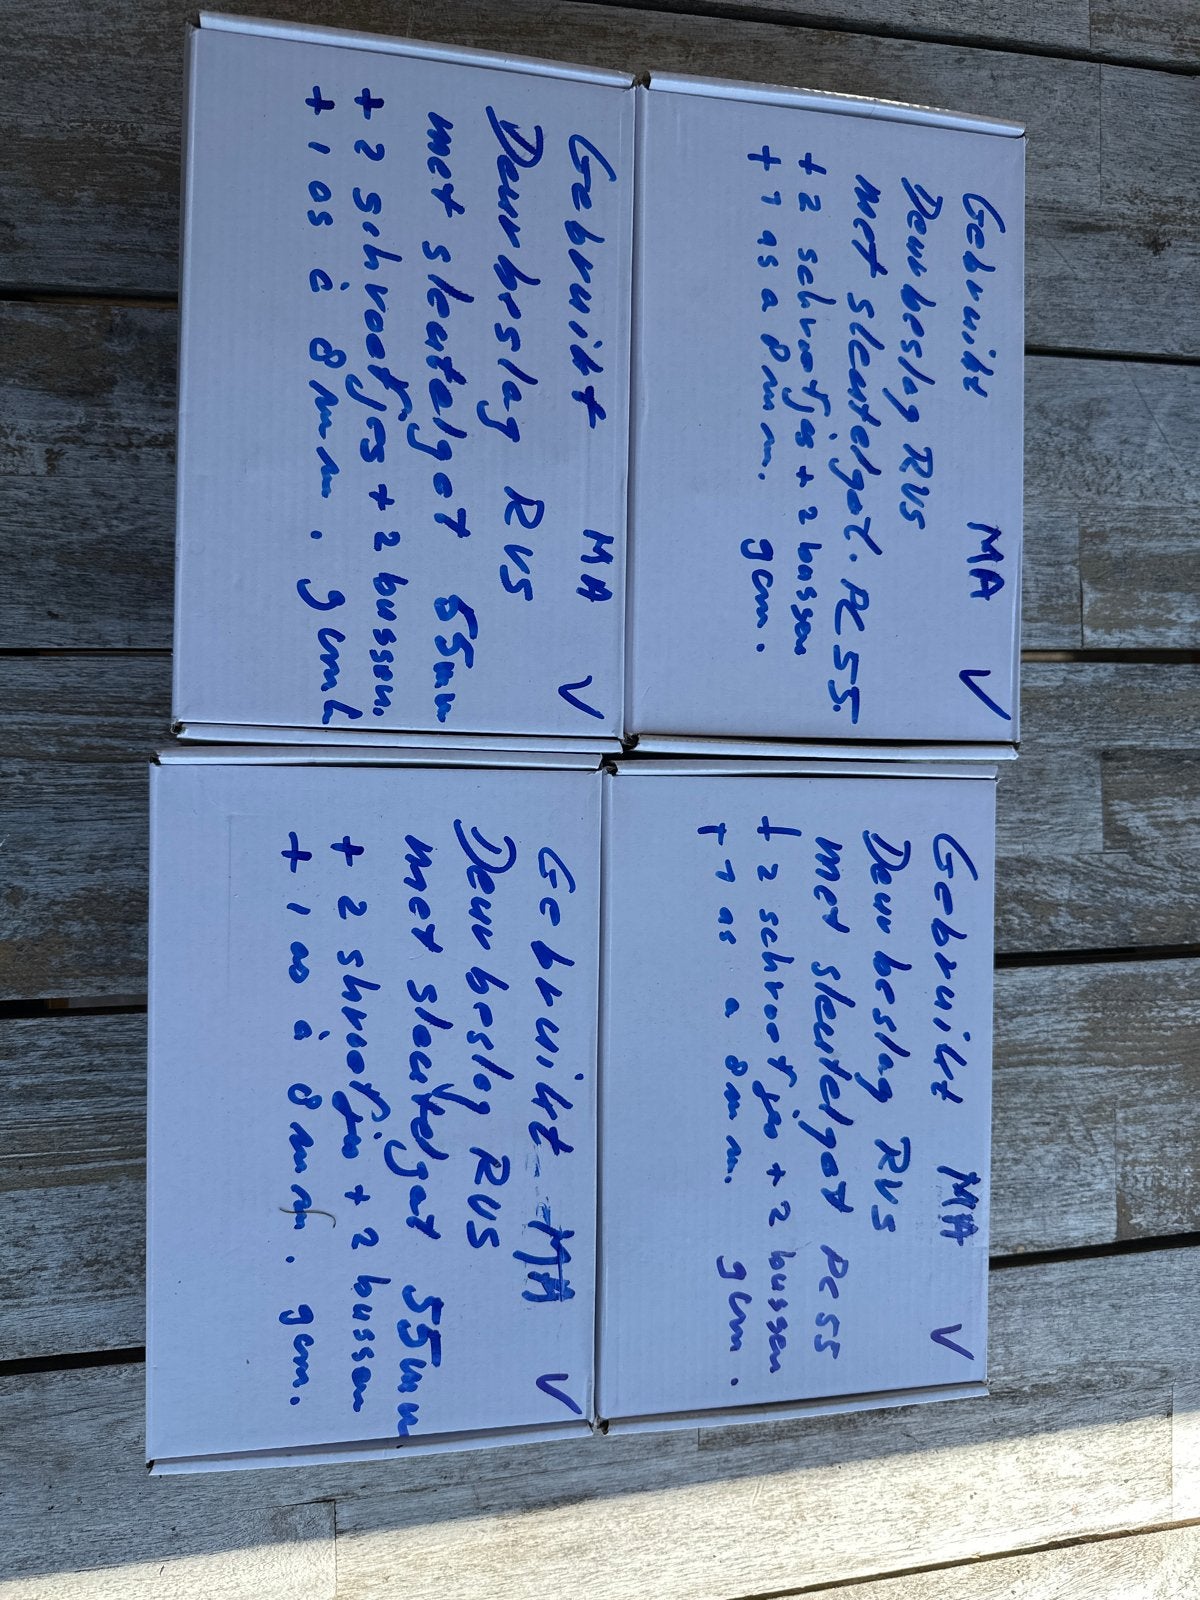 Gebruikt MA V
Deurbeslag RVS
met sleutelgat 55mm
+ 2 schroefjes + 2 bussen.
+ 1 as à 8 mm. gcml
Gebruikt MA V
Deurbeslag RVS
met sleutelgat. PC 55
+ 2 schroefjes + 2 bussen
+ 1 as a 8 mm. gcm.
Gebruikt MA V
Deurbeslag RVS
met sleutelgat 55mm
+ 2 shroefjes + 2 bussen
+ 1 as à 8 mm. gcm.
Gebruikt MA V
Deurbeslag RVS
met sleutelgat PC 55
+ 2 schroefjes + 2 bussen
+ 1 as a 8 mm. gcm.